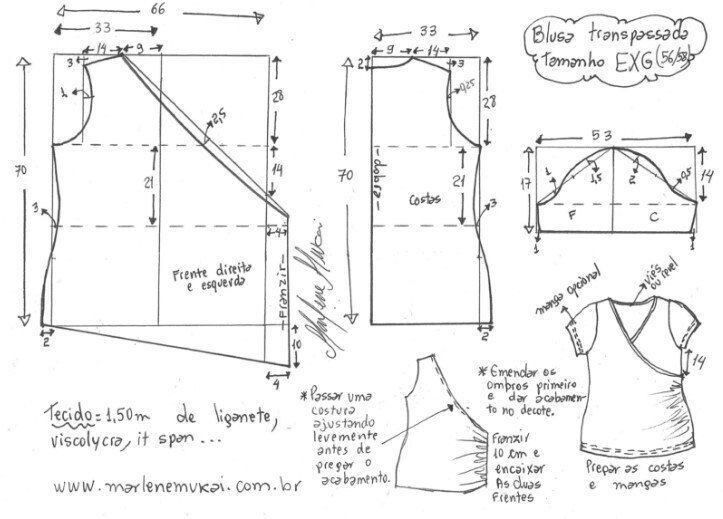 66
33
14
9
3
1
28
2,5
70
21
14
3
4
Frente direita
e esquerda
Franzir
2
10
4
Marlene Mukai
33
9
14
2
3
0,25
28
70
dobra
21
costas
3
2
Blusa transpassada
tamanho EXG (56/58)
53
17
1
1,5
2
0,5
14
F
C
1
1
manga opcional
viés
ou revel
14
Prepar as costas
e mangas
* Passar uma
costura
ajustando
levemente
antes de
pregar o
acabamento.
* Emendar os
ombros primeiro
e dar acabamento
no decote.
Franzir
10 cm e
encaixar
As duas
Frentes
Tecido = 1,50m de liganete,
viscolycra, it span ...
www.marlenemukai.com.br